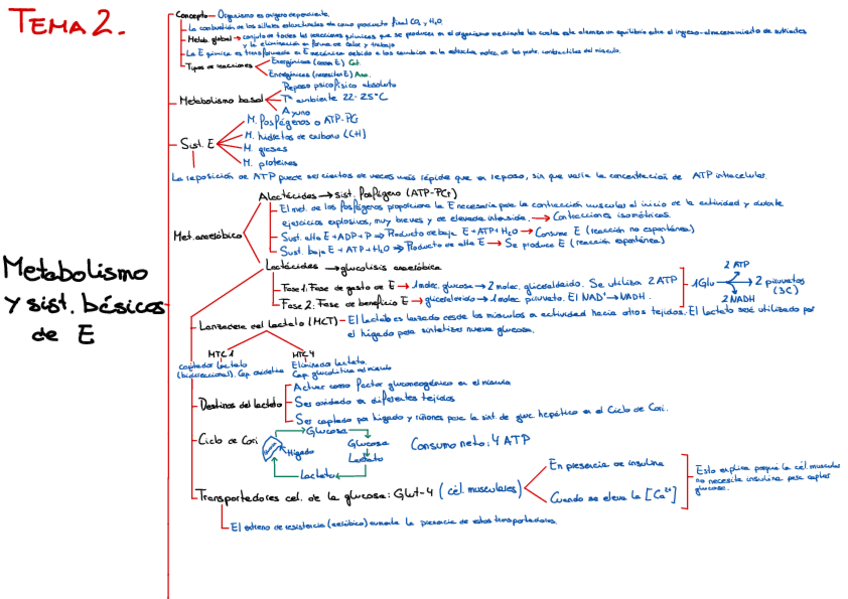 TEMA 2.
Metabolismo
y sist. básicos
de E
Concepto - Organismo es oxígeno dependiente.
La combustión de los sillares estructurales da como producto final CO₂ y H₂O.
Metab. global → conjunto de todas las reacciones químicas que se producen en el organismo mediante las cuales este alcanza un equilibrio entre el ingreso-almacenamiento de nutrientes
y la eliminación en forma de calor y trabajo
La E química es transformada en E mecánica debido a los cambios en la estructura molec. de las prot. contráctiles del músculo.
Tipos de reacciones
Exergónicas (ceden E) Cat.
Endergónicas (necesitan E) Ana.
Metabolismo basal
Reposo psicofísico absoluto
Tª ambiente 22-25°C
Ayuno
Sist. E
M. fosfágenos o ATP-PCr
M. hidratos de carbono (CH)
M. grasas
M. proteínas
La reposición de ATP puede ser cientos de veces más rápida que en reposo, sin que varíe la concentración de ATP intracelular.
Met. anaeróbico
Alactácidas → sist. fosfágeno (ATP-PCr)
El met. de los fosfágenos proporciona la E necesaria para la contracción muscular al inicio de la actividad y durante
ejercicios explosivos, muy breves y de elevada intensidad. → Contracciones isométricas.
Sust. alta E + ADP + P → Producto de baja E + ATP + H₂O → Consume E (reacción no espontánea)
Sust. baja E + ATP + H₂O → Producto de alta E → Se produce E (reacción espontánea)
Lactácidas → glucolisis anaeróbica
Fase 1: Fase de gasto de E → 1 molec. glucosa → 2 molec. gliceraldeido. Se utiliza 2 ATP
Fase 2: Fase de beneficio E → gliceraldeido → 1 molec. piruvato. El NAD⁺ → NADH.
1 Glu
2 ATP
2 piruvatos
(3C)
2 NADH
Lanzadera del lactato (MCT) - El lactato es lanzado desde los músculos en actividad hacia otros tejidos. El lactato será utilizado por
el hígado para sintetizar nueva glucosa.
MTC 1
captador lactato
(bidireccional). Cap. oxidativa
MTC 4
Eliminador lactato.
Cap. glucolítica músculo
Destinos del lactato
Actuar como factor gluconeogénico en el músculo
Ser oxidado en diferentes tejidos
Ser captado por hígado y riñones para la sint. de gluc. hepática en el Ciclo de Cori.
Ciclo de Cori
Glucosa
Hígado
Glucosa
Lactato
Lactato
Consumo neto: 4 ATP
Transportadores cel. de la glucosa: Glut-4 (cél. musculares)
En presencia de insulina
Cuando se eleva la [Ca²⁺]
Esto explica porqué la cél. muscular
no necesita insulina para captar
glucosa.
El entreno de resistencia (aeróbico) aumenta la presencia de estos transportadores.